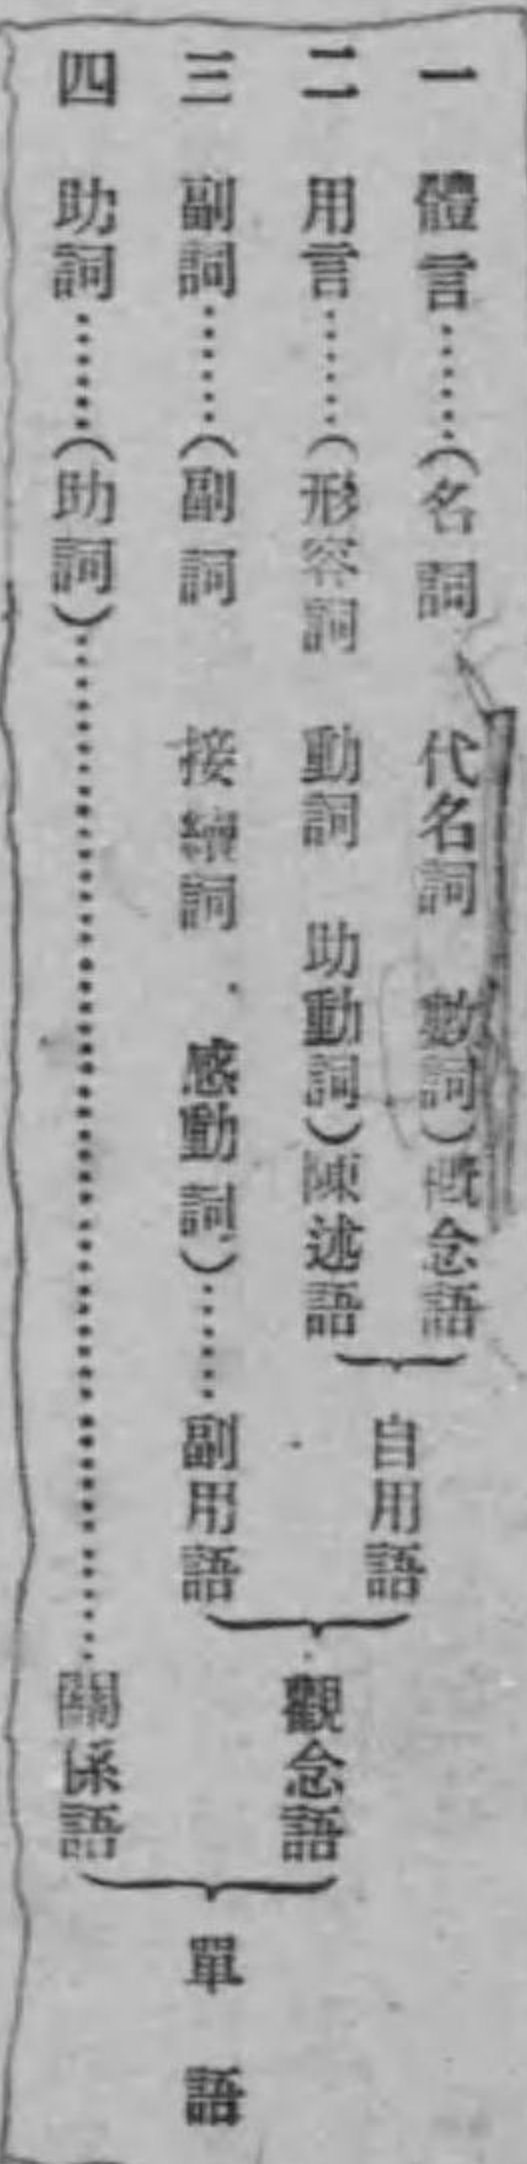 一 體言⋯⋯(名詞 代名詞 數詞)概念語
二 用言⋯⋯(形容詞 動詞 助動詞)陳述語
自用語
三 副詞⋯⋯(副詞 接續詞 感動詞)⋯⋯副用語
觀念語
四 助詞⋯⋯(助詞)⋯⋯⋯⋯⋯⋯⋯⋯⋯⋯⋯⋯關係語
單語